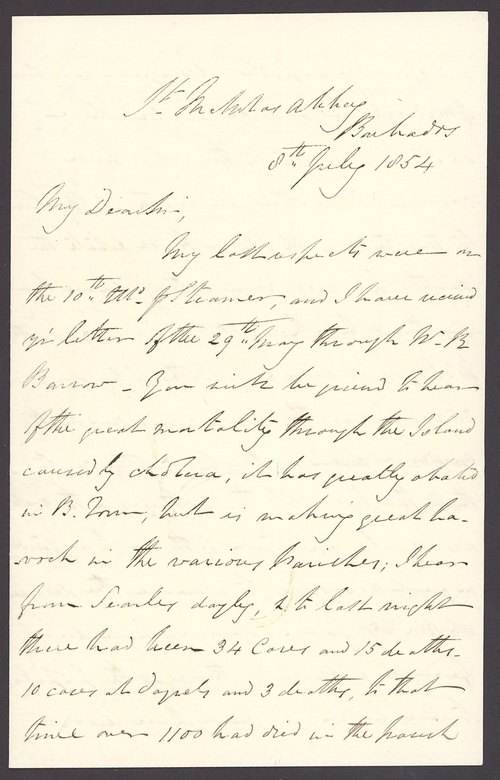 St. Nicholas Abbey
Barbados
8th July 1854
My Dear Sir,
My last respects were on
the 10th Ulto. p Steamer, and I have received
yr letter of the 29th May through W. R
Barrow - You will be grieved to hear
of the great mortality through the Island
caused by cholera, it has greatly abated
in B. Town, but is making great ha-
vock in the various Parishes; I hear
from Searles dayly, & to last night
there had been 34 Cases and 15 deaths-
10 cases at and 3 deaths, to that
time over 1100 had died in the Parish